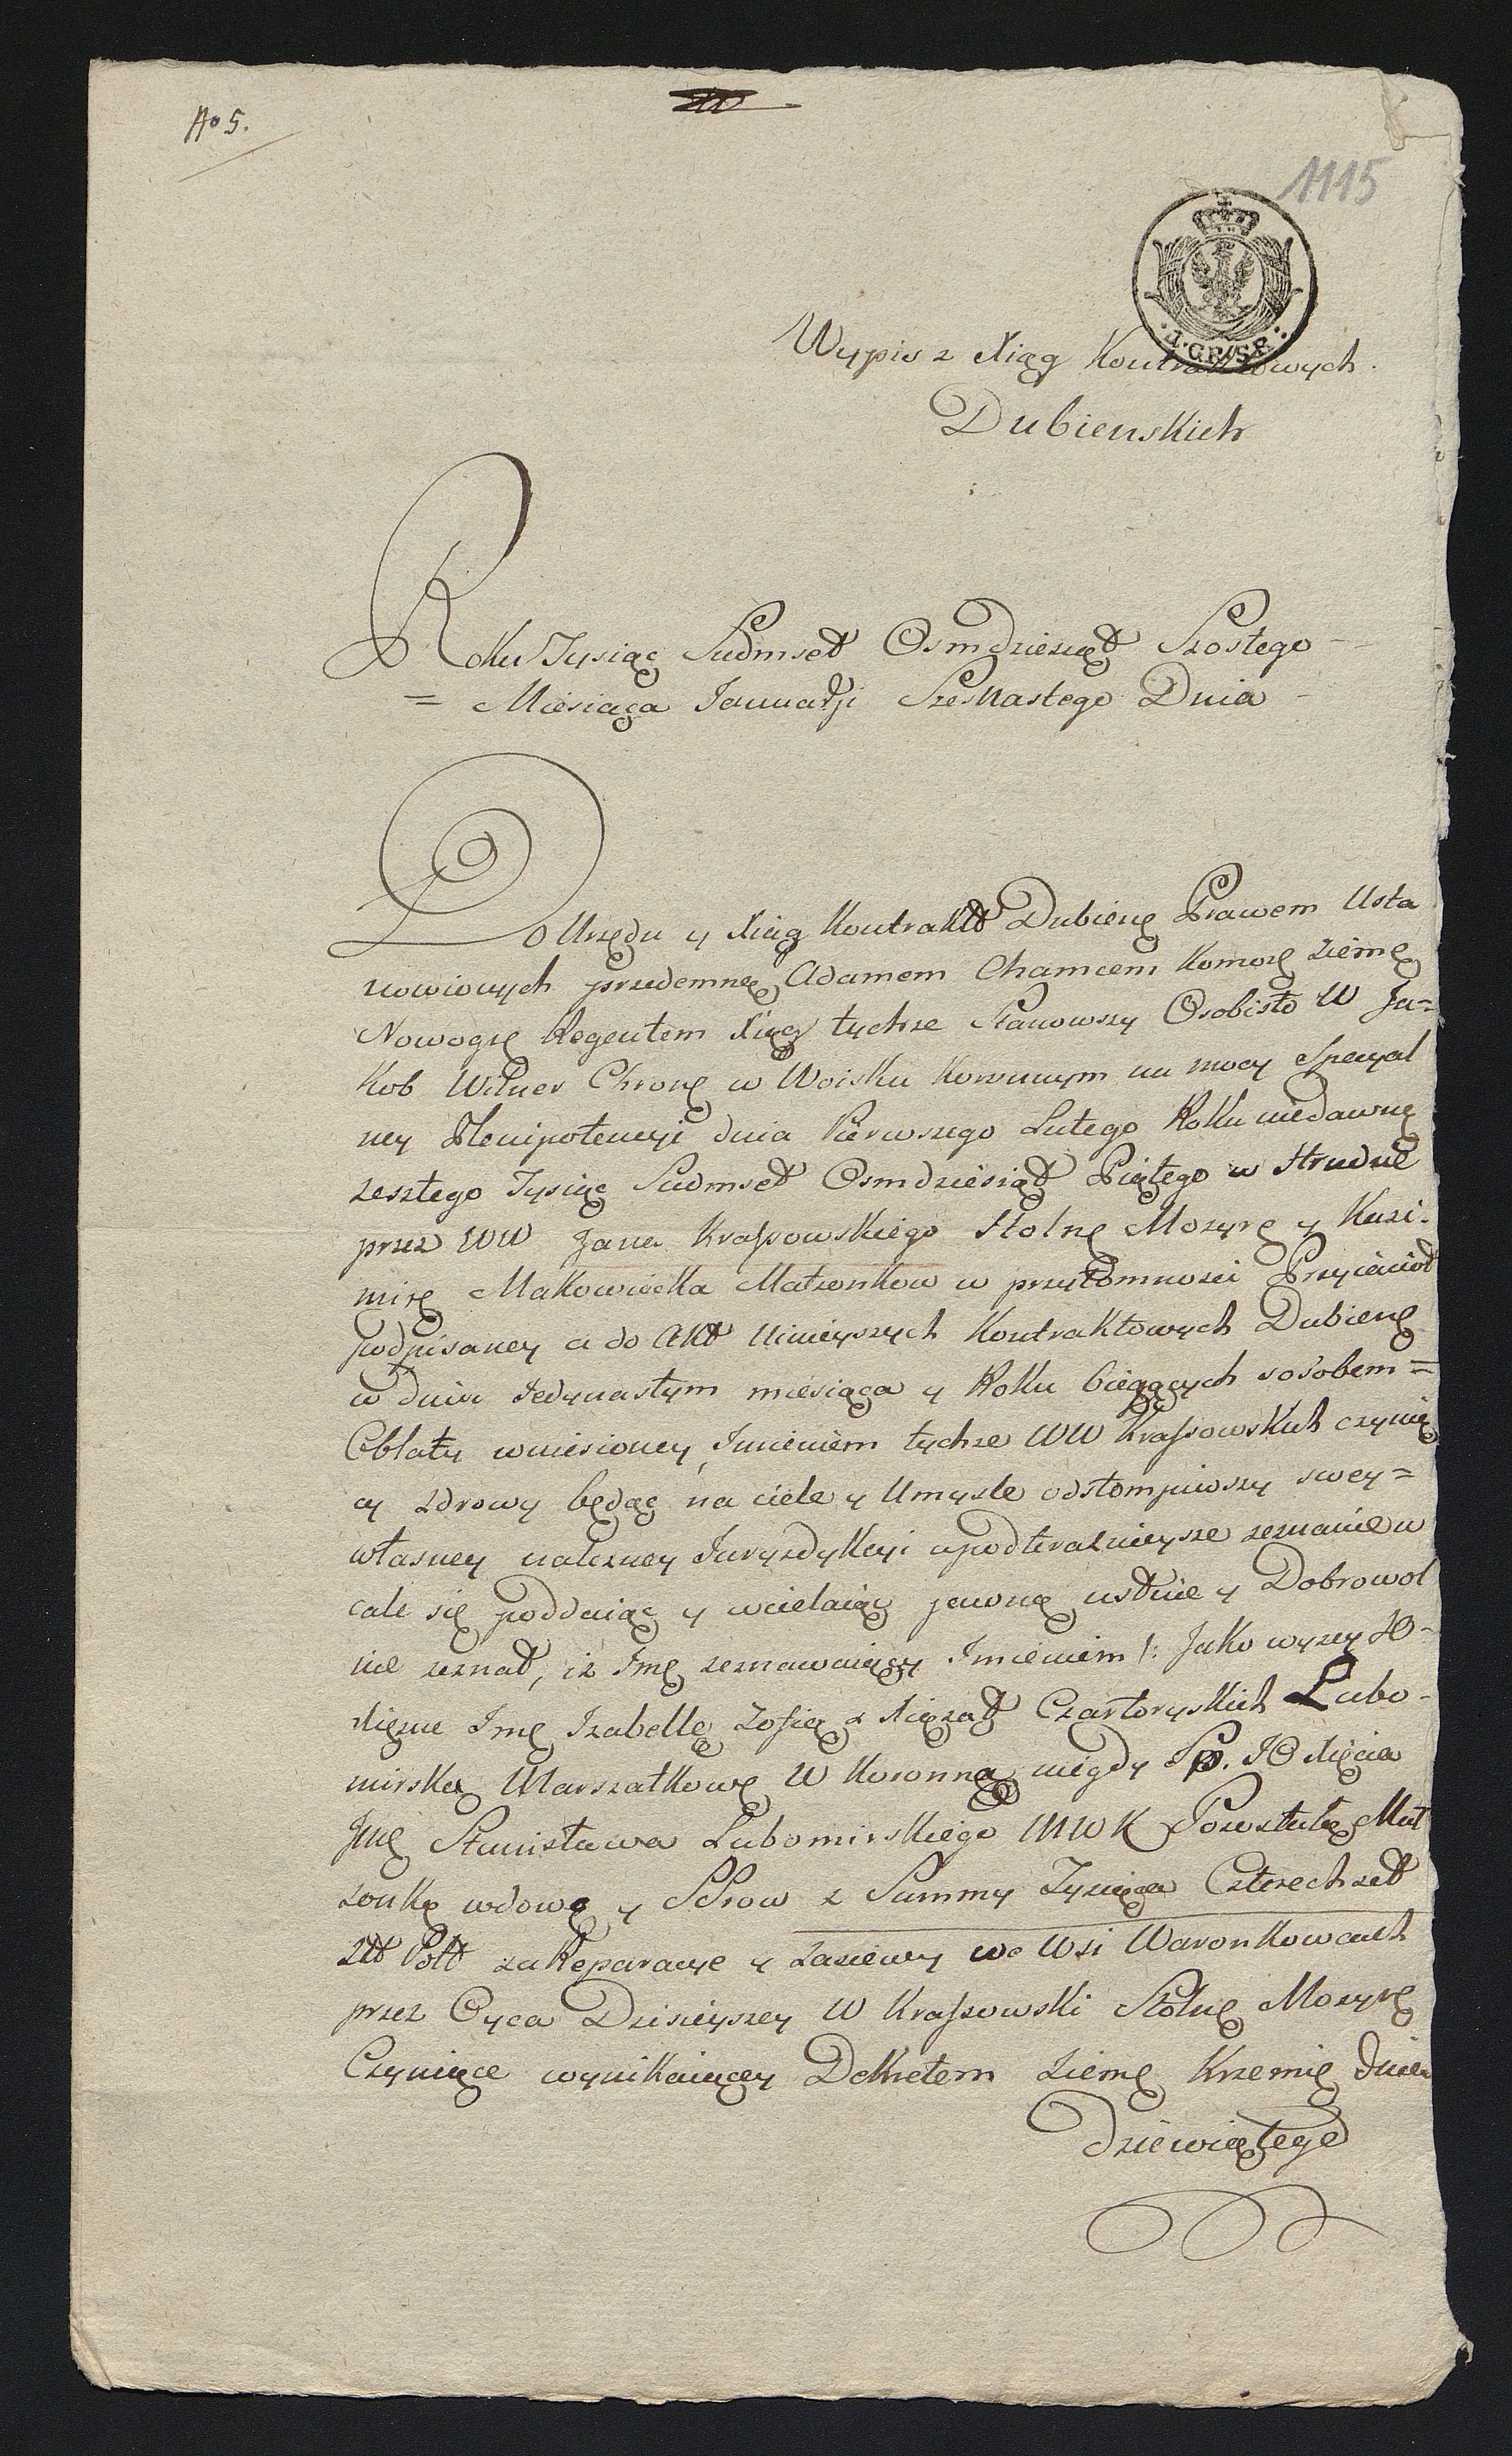 No 5.
1115
4. GR. SR.
Wypis z Xiąg Kontraktowych
Dubienskich
Roku Tysiąc Siedmset Osmdziesiąt Szostego
= Miesiąca Januarji Szesnastego Dnia
Do Urzędu y Xiąg Kontrakt Dubienę Prawem Usta
nowionych przedemną Adamem Chamcem Komorę Ziemę
Nowogrę Regentem Xiąg tychze Stanowszy Osobisto W Ja=
kob Wilner Chronę w Woisku Koronnym na mocy Specyal
ney Plenipotencyi dnia Pierwszego Lutego Roku niedawnę
zeszłego Tysiąc Siedmset Osmdziesiąt Piątego w Strudzie
przez WW Jana Krassowskiego Stolnę Mozyrę y Kazi-
mirę Makowiecka Małzonkow w przytomnosci Przyiacioł
podpisaney a do Akt Ninieyszych Kontraktowych Dubienę
w dniu Jedynastym miesiąca y Roku bieżących sosobem=
Oblaty wniesioney, Imieniem tychze WW Krassowskich czynią
cy zdrowy będąc na ciele y Umysle odstompiwszy swey=
własney nalezney Juryzdykcyi a pod teraznieysze zeznanie w
cale się poddaiąc y wcielaiąc jawnę ustnie y Dobrowol
nie zeznał, iz Imę zeznawaiący Imieniem /: Jako wyzey JO-
Xięzne Imę Izabellę Zofię z Xiążąt Czartoryskich Lubo-
mirską Marszałkowę W Koronną niegdy Sp. JO Xięcia
Jmę Stanisława Lubomirskiego MWK Pozostałą Mał
zonkę wdowę y SSrow z Summy Tysiąca Czterechset
Złł Poll za Reparacye y zasiewy we Wsi Waronkowcach
przez Oyca Dzisieyszey W Krassowski Stolnę Mozyrę
Czynięce wynikaiącey Dekretem Ziemę Krzemię dnia
Dziewiętego